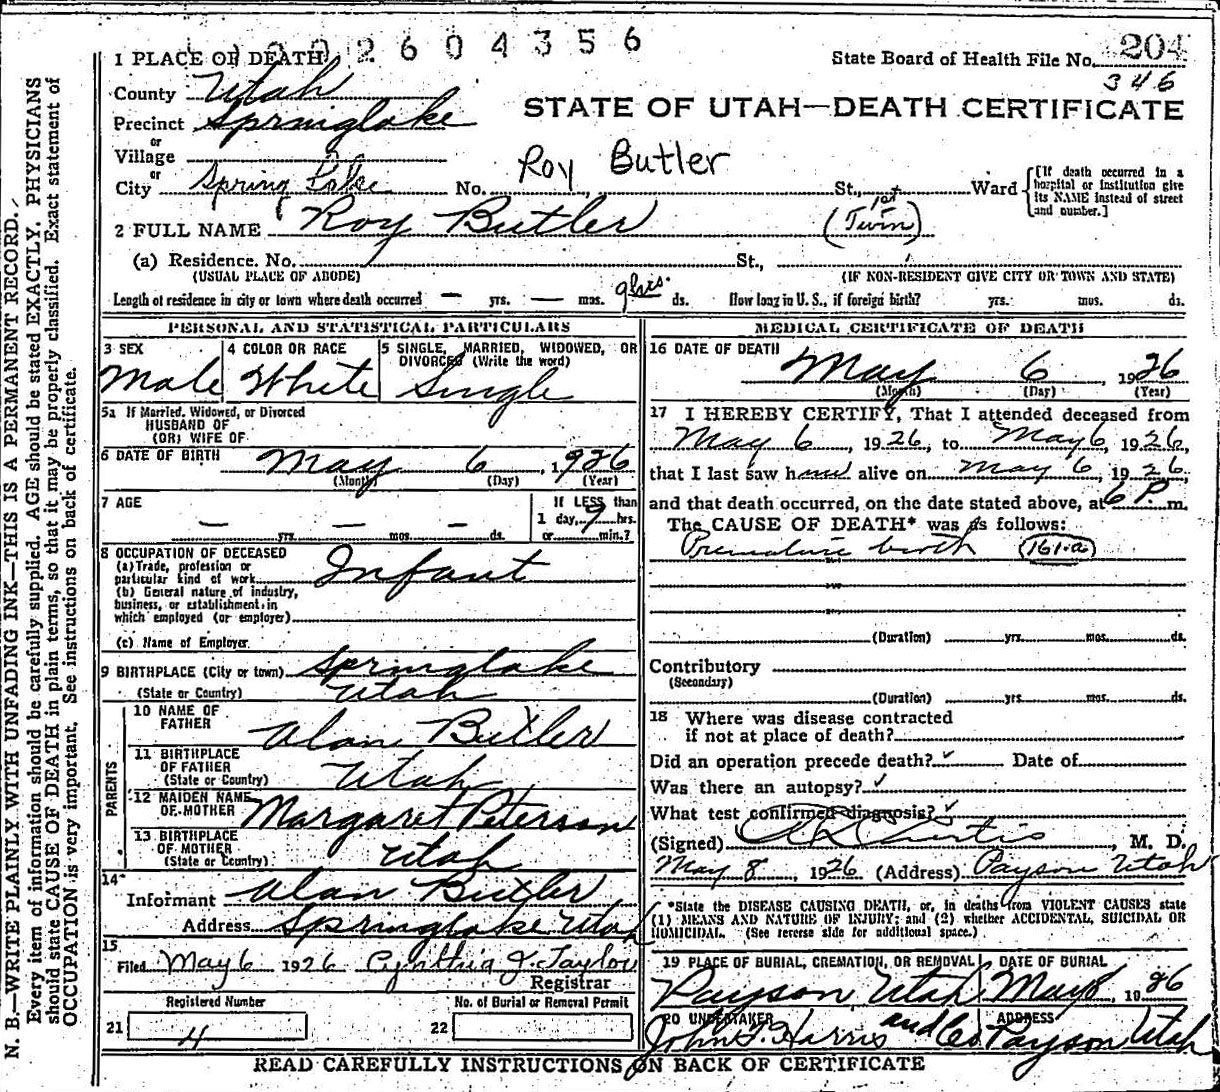 2604356
1 PLACE OF DEATH
State Board of Health File No. 204
346
County Utah
STATE OF UTAH—DEATH CERTIFICATE
Precinct Springlake
or
Village
Roy Butler
or
City Spring Lake No. St., Ward
[If death occurred in a hospital or institution give its NAME instead of street and number.]
2 FULL NAME Roy Butler (1st Twin)
(a) Residence. No. St.,
(USUAL PLACE OF ABODE) (IF NON-RESIDENT GIVE CITY OR TOWN AND STATE)
Length of residence in city or town where death occurred — yrs. — mos. 9 hrs. ds. How long in U. S., if foreign birth? yrs. mos. ds.
PERSONAL AND STATISTICAL PARTICULARS
3 SEX
Male
4 COLOR OR RACE
White
5 SINGLE, MARRIED, WIDOWED, OR
DIVORCED (Write the word)
Single
5a If Married, Widowed, or Divorced
HUSBAND OF
(OR) WIFE OF
6 DATE OF BIRTH May 6, 1926
(Month) (Day) (Year)
7 AGE
— yrs. — mos. — ds.
If LESS than
1 day, 9 hrs.
or min.?
8 OCCUPATION OF DECEASED
(a) Trade, profession or
particular kind of work Infant
(b) General nature of industry,
business, or establishment in
which employed (or employer)
(c) Name of Employer
9 BIRTHPLACE (City or town) Springlake
(State or Country) Utah
PARENTS
10 NAME OF
FATHER Alan Butler
11 BIRTHPLACE
OF FATHER
(State or Country) Utah
12 MAIDEN NAME
OF MOTHER Margaret Peterson
13 BIRTHPLACE
OF MOTHER
(State or Country) Utah
14
Informant Alan Butler
Address Springlake Utah
15
Filed May 6 1926 Cynthia J. Taylor
Registrar
Registered Number
21 4
No. of Burial or Removal Permit
22
MEDICAL CERTIFICATE OF DEATH
16 DATE OF DEATH
May 6, 1926
(Month) (Day) (Year)
17 I HEREBY CERTIFY, That I attended deceased from
May 6, 1926, to May 6, 1926,
that I last saw him alive on May 6, 1926,
and that death occurred, on the date stated above, at 6 P. m.
The CAUSE OF DEATH* was as follows:
Premature birth (161-a)
(Duration) yrs. mos. ds.
Contributory
(Secondary)
(Duration) yrs. mos. ds.
18 Where was disease contracted
if not at place of death?
Did an operation precede death? ✓ Date of
Was there an autopsy? ✓
What test confirmed diagnosis? ✓
(Signed) Curtis, M. D.
May 8, 1926 (Address) Payson Utah
*State the DISEASE CAUSING DEATH, or, in deaths from VIOLENT CAUSES state
(1) MEANS AND NATURE OF INJURY; and (2) whether ACCIDENTAL, SUICIDAL OR
HOMICIDAL. (See reverse side for additional space.)
19 PLACE OF BURIAL, CREMATION, OR REMOVAL
Payson Utah
DATE OF BURIAL
May 8, 1926
20 UNDERTAKER
John T. Harris and Co
ADDRESS
Payson Utah
READ CAREFULLY INSTRUCTIONS ON BACK OF CERTIFICATE
N. B.—WRITE PLAINLY WITH UNFADING INK—THIS IS A PERMANENT RECORD.
Every item of information should be carefully supplied. AGE should be stated EXACTLY. PHYSICIANS
should state CAUSE OF DEATH in plain terms, so that it may be properly classified. Exact statement of
OCCUPATION is very important. See instructions on back of certificate.